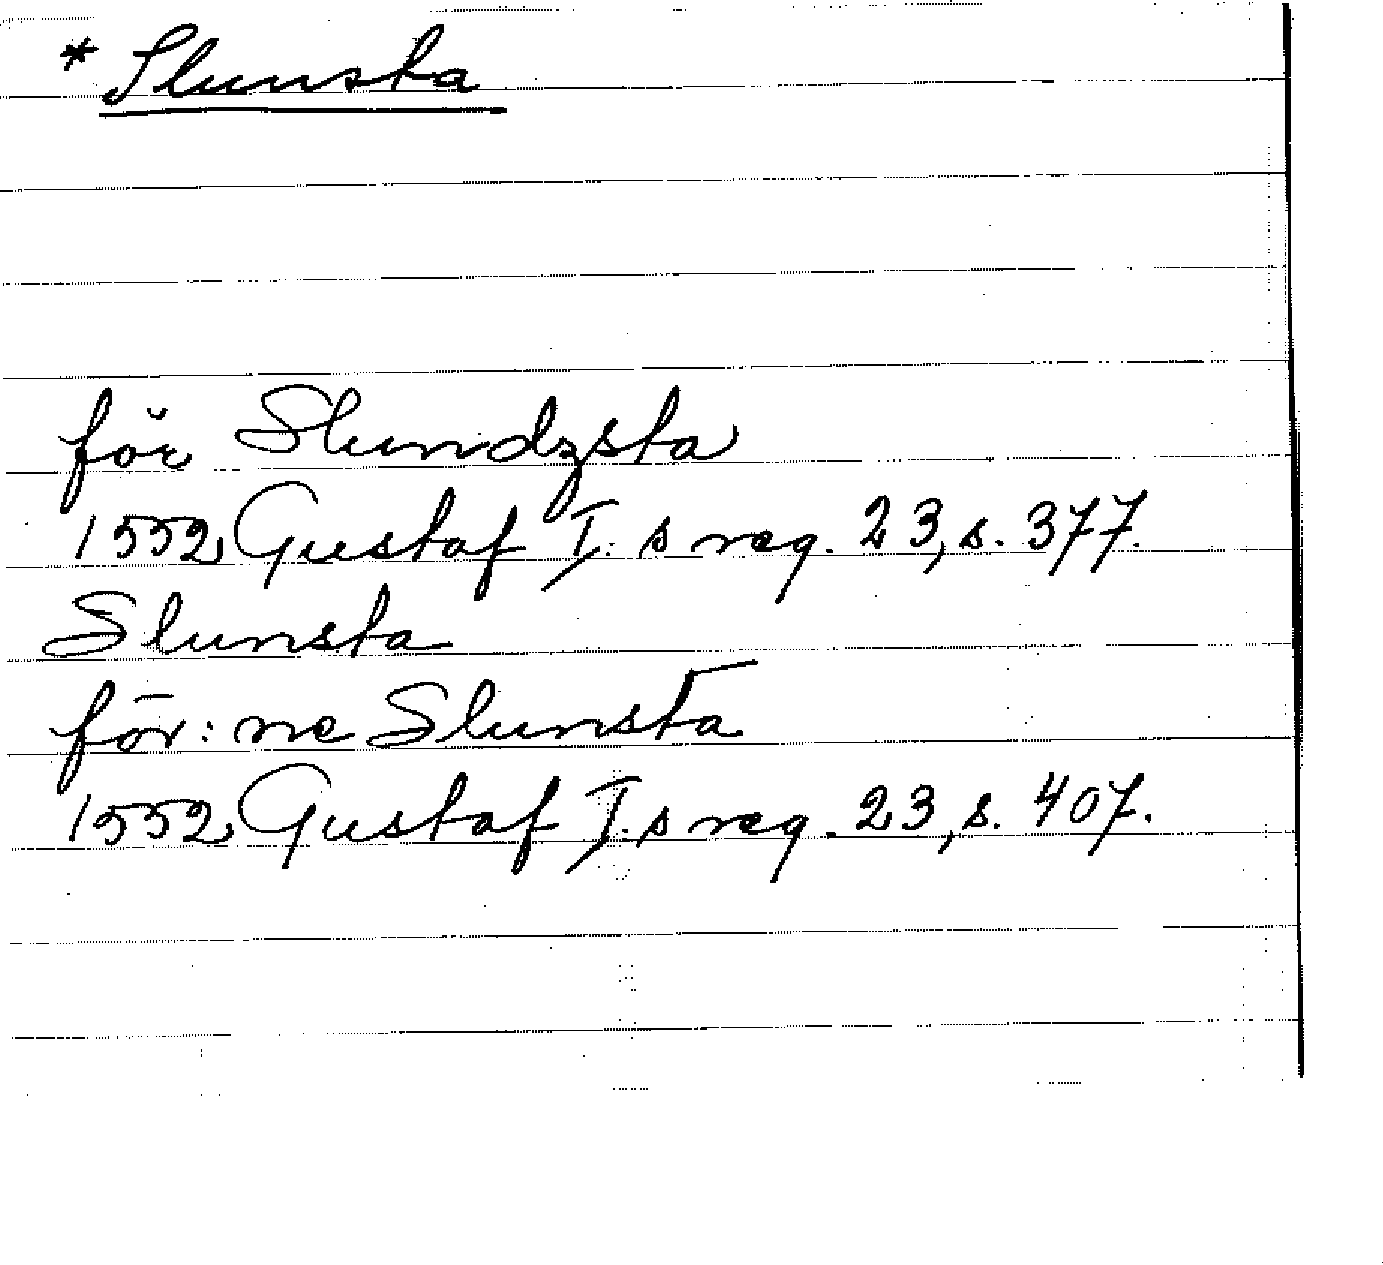 * Slunsta
för Slundzsta
1552 Gustaf I:s reg. 23, s. 377.
Slunsta
för:ne Slunsta
1552 Gustaf I.s reg. 23, s. 407.